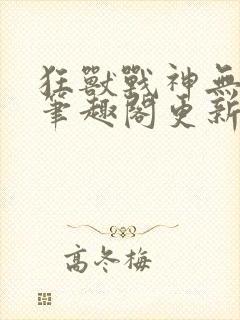 狂獸戰神無
筆趣閣更新
高冬梅